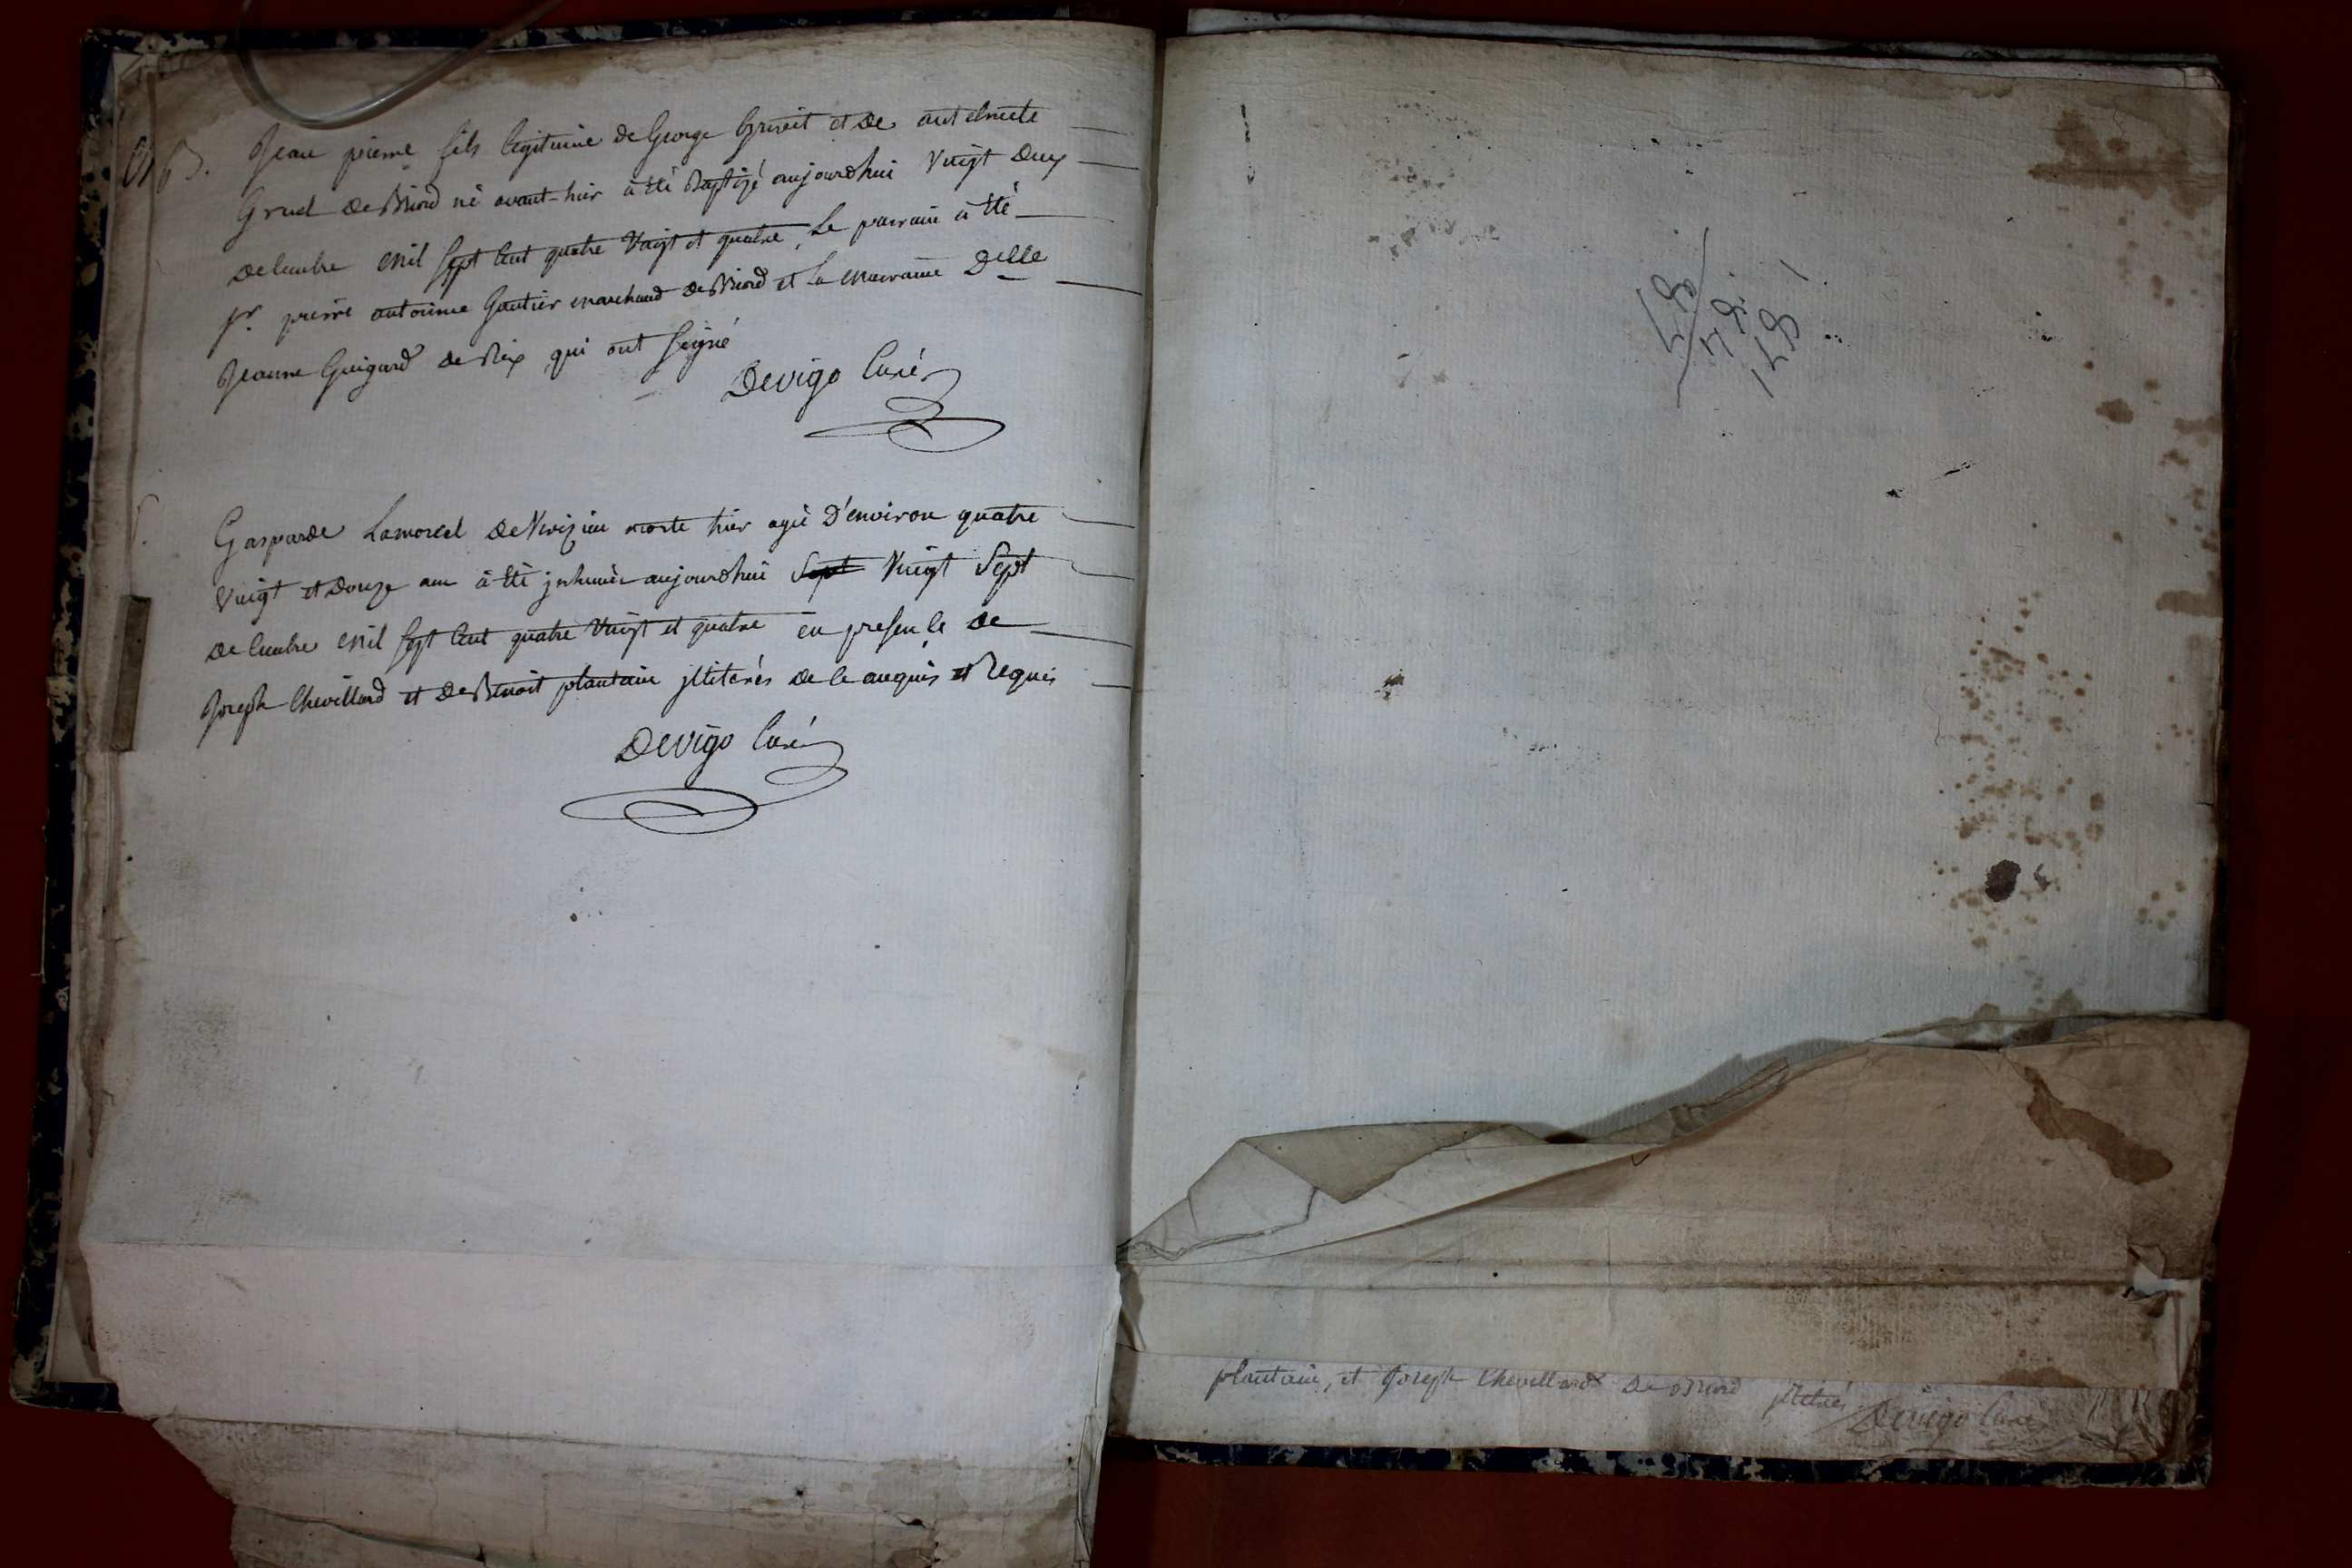 Jean pierre fils legitime de George Grivet et de antelmete
Grud de Briord né avant-hier à été Baptizé aujourdhui vingt deux
decembre mil sept cent quatre vingt et quatre, le parrain à été
sr. pierre antoinne Gautier marchand de Briord et la marraine Delle
Jeanne Guigard de Rix qui ont signé
Devigo Curé
Gasparde Lamorcel de Verizieu morte hier agée d'environ quatre
vingt et douze ans à été jnhumée aujourdhui sept vingt sept
decembre mil sept cent quatre vingt et quatre en presence de
Joseph Chevillard et de Benoit plantain jlliterés de ce anquis et Requis
Devigo Curé
plantain, et Joseph Chevillard de Briord jlliterés
Devigo Curé